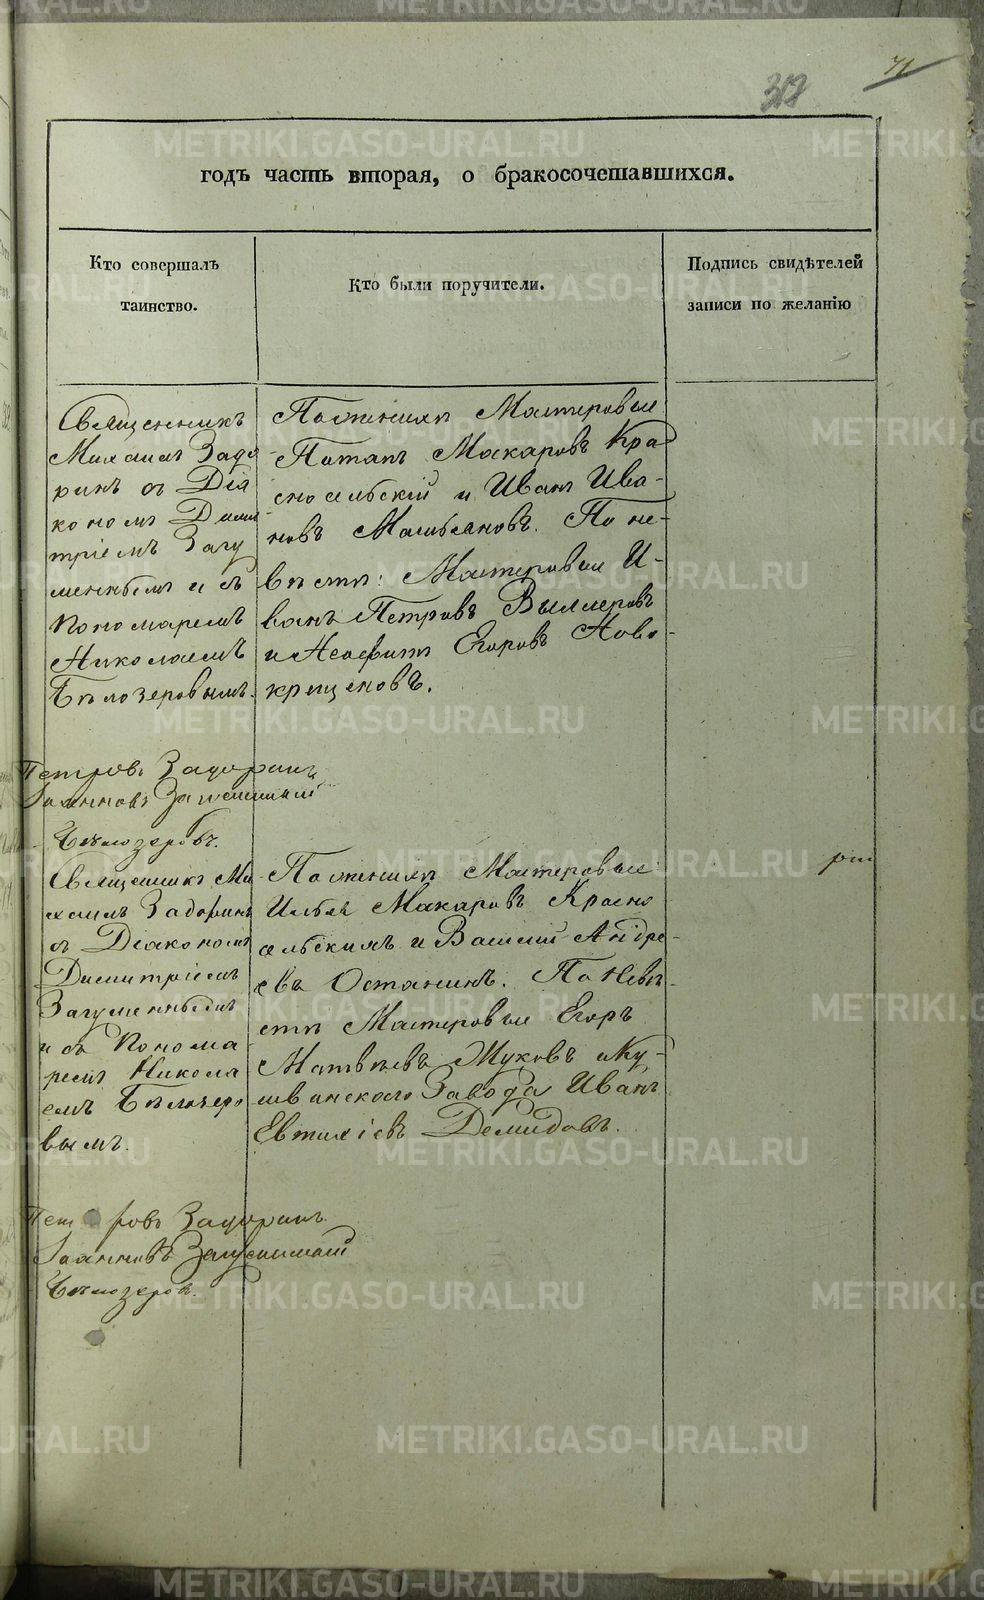 71
317
годъ часть вторая, о бракосочетавшихся.
Кто совершалъ
таинство.
Кто были поручители.
Подпись свидѣтелей
записи по желанію
Священникъ
Михаилъ Задо
ринъ съ Діа
кономъ Дими
тріемъ Загу
меннымъ и съ
Пономаремъ
Николаемъ
Бѣлозеровымъ.
По женихѣ Мастеровые
Потапъ Макаровъ Кра
сносельскій и Иванъ Ива-
новъ Мальгановъ. По не-
вѣстѣ: Мастеровые И-
ванъ Петровъ
и Неофитъ Егоровъ Ново-
крещеновъ.
Петровъ Задоринъ
Іоанновъ
Бѣлозеровъ.
Священникъ Ми
хаилъ Задоринъ
съ Діакономъ
Димитріемъ
Загуменнымъ
и съ Понома-
ремъ Никола
емъ Бѣлозеро
вымъ.
По женихѣ Мастеровые
Илья Макаровъ Красно
сельскихъ и Василій Андре-
евъ Останинъ. По невѣ-
стѣ Мастеровые Егоръ
Матвѣевъ Жуковъ и Ку-
швинскаго Завода Иванъ
Евтихіевъ Демидовъ.
Петровъ Задоринъ.
Іоанновъ Загуменный
Бѣлозеровъ.
METRIKI.GASO-URAL.RU